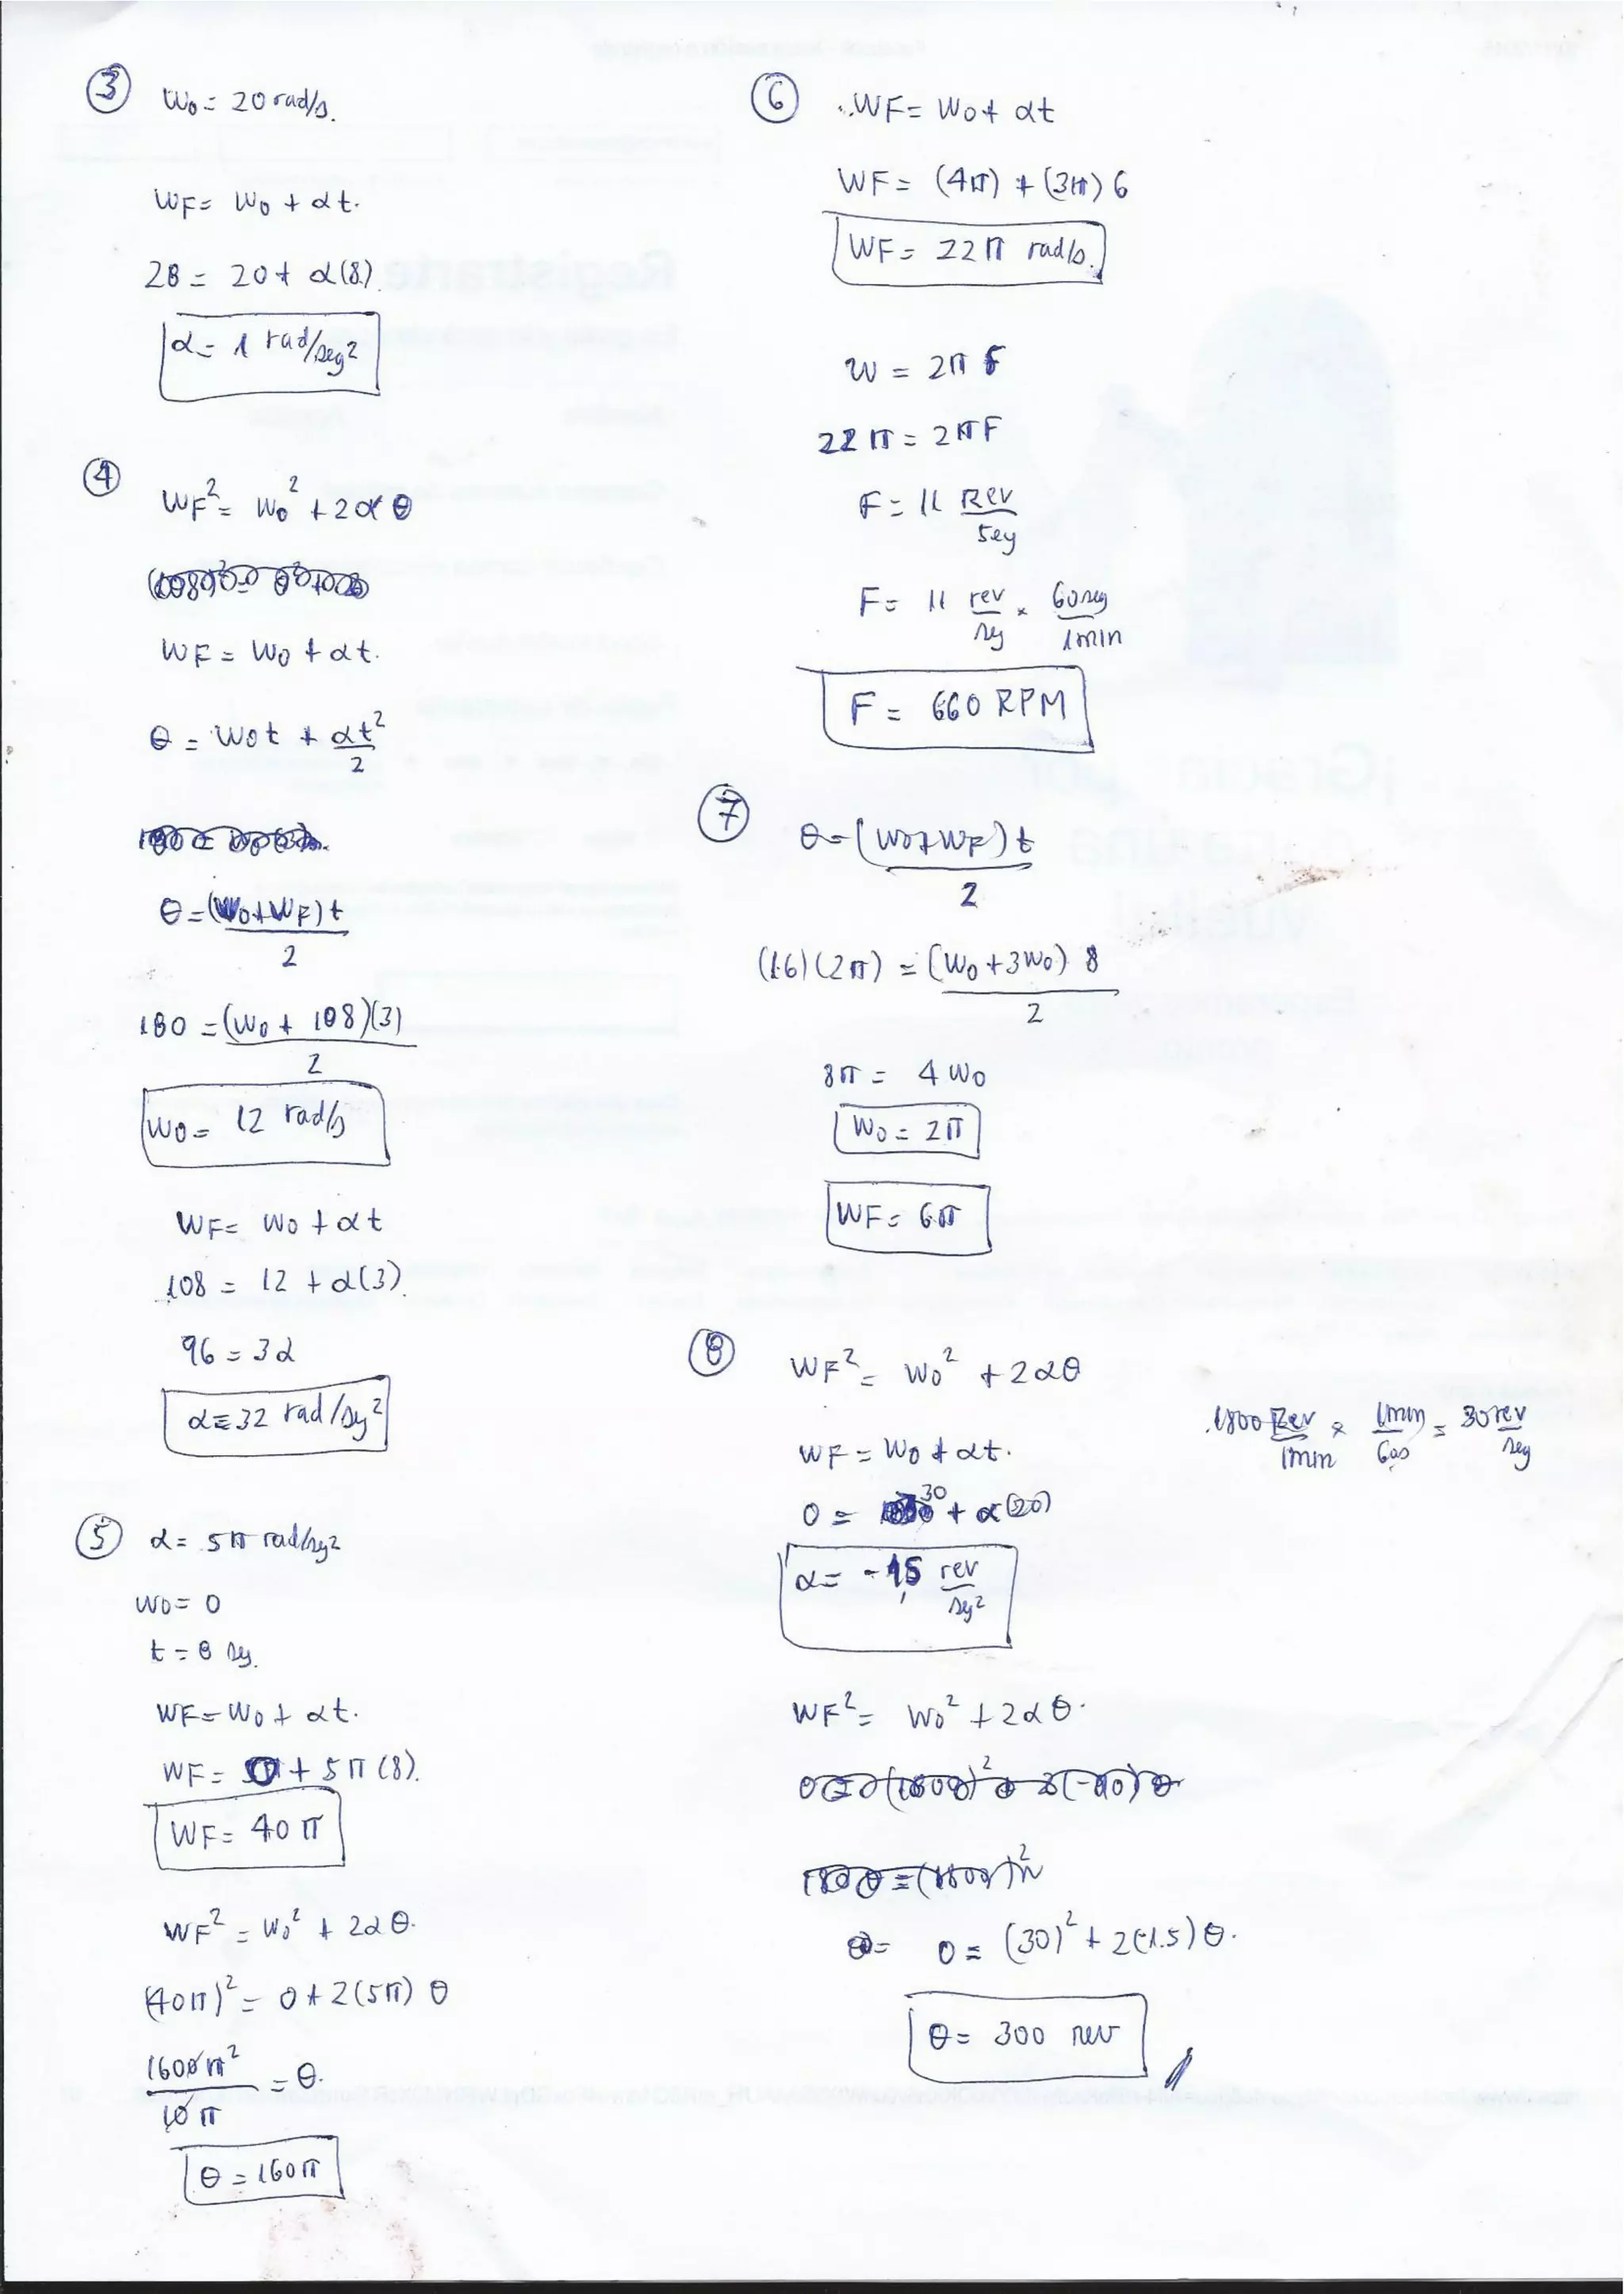 ③ W₀ = 20 rad/s.
WF = W₀ + αt.
28 = 20 + α(8)
α = 1 rad/seg²
④ WF² = W₀² + 2αθ
WF = W₀ + αt.
θ = W₀t + αt²/2
θ = (W₀+WF)t/2
180 = (W₀ + 108)(3)/2
W₀ = 12 rad/s
WF = W₀ + αt
108 = 12 + α(3)
96 = 3α
α = 32 rad/sg²
⑤ α = 5π rad/sg²
W₀ = 0
t = 8 sg.
WF = W₀ + αt.
WF = 0 + 5π(8).
WF = 40π
WF² = W₀² + 2αθ.
(40π)² = 0 + 2(5π)θ
1600π²/10π = θ.
θ = 160π
⑥ WF = W₀ + αt
WF = (4π) + (3π)6
WF = 22π rad/s.
W = 2πF
22π = 2πF
F = 11 Rev/seg
F = 11 rev/sg × 60seg/1min
F = 660 RPM
⑦ θ = (W₀+WF)t/2
(16)(2π) = (W₀+3W₀)8/2
8π = 4W₀
W₀ = 2π
WF = 6π
⑧ WF² = W₀² + 2αθ
1800 Rev/1min × 1min/60s = 30rev/seg
WF = W₀ + αt.
0 = 30 + α(20)
α = -1,5 rev/sg²
WF² = W₀² + 2αθ.
0 = (30)² + 2(-1.5)θ.
θ = 300 rev